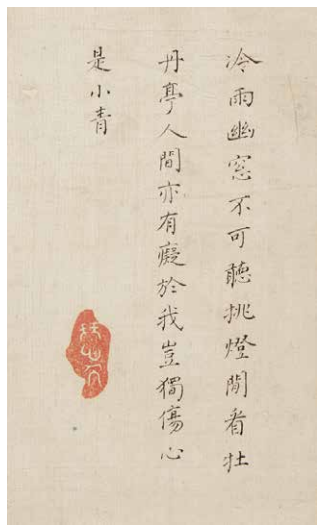 冷雨幽窓不可聽挑燈閒看牡
丹亭人間亦有癡於我豈獨傷心
是小青